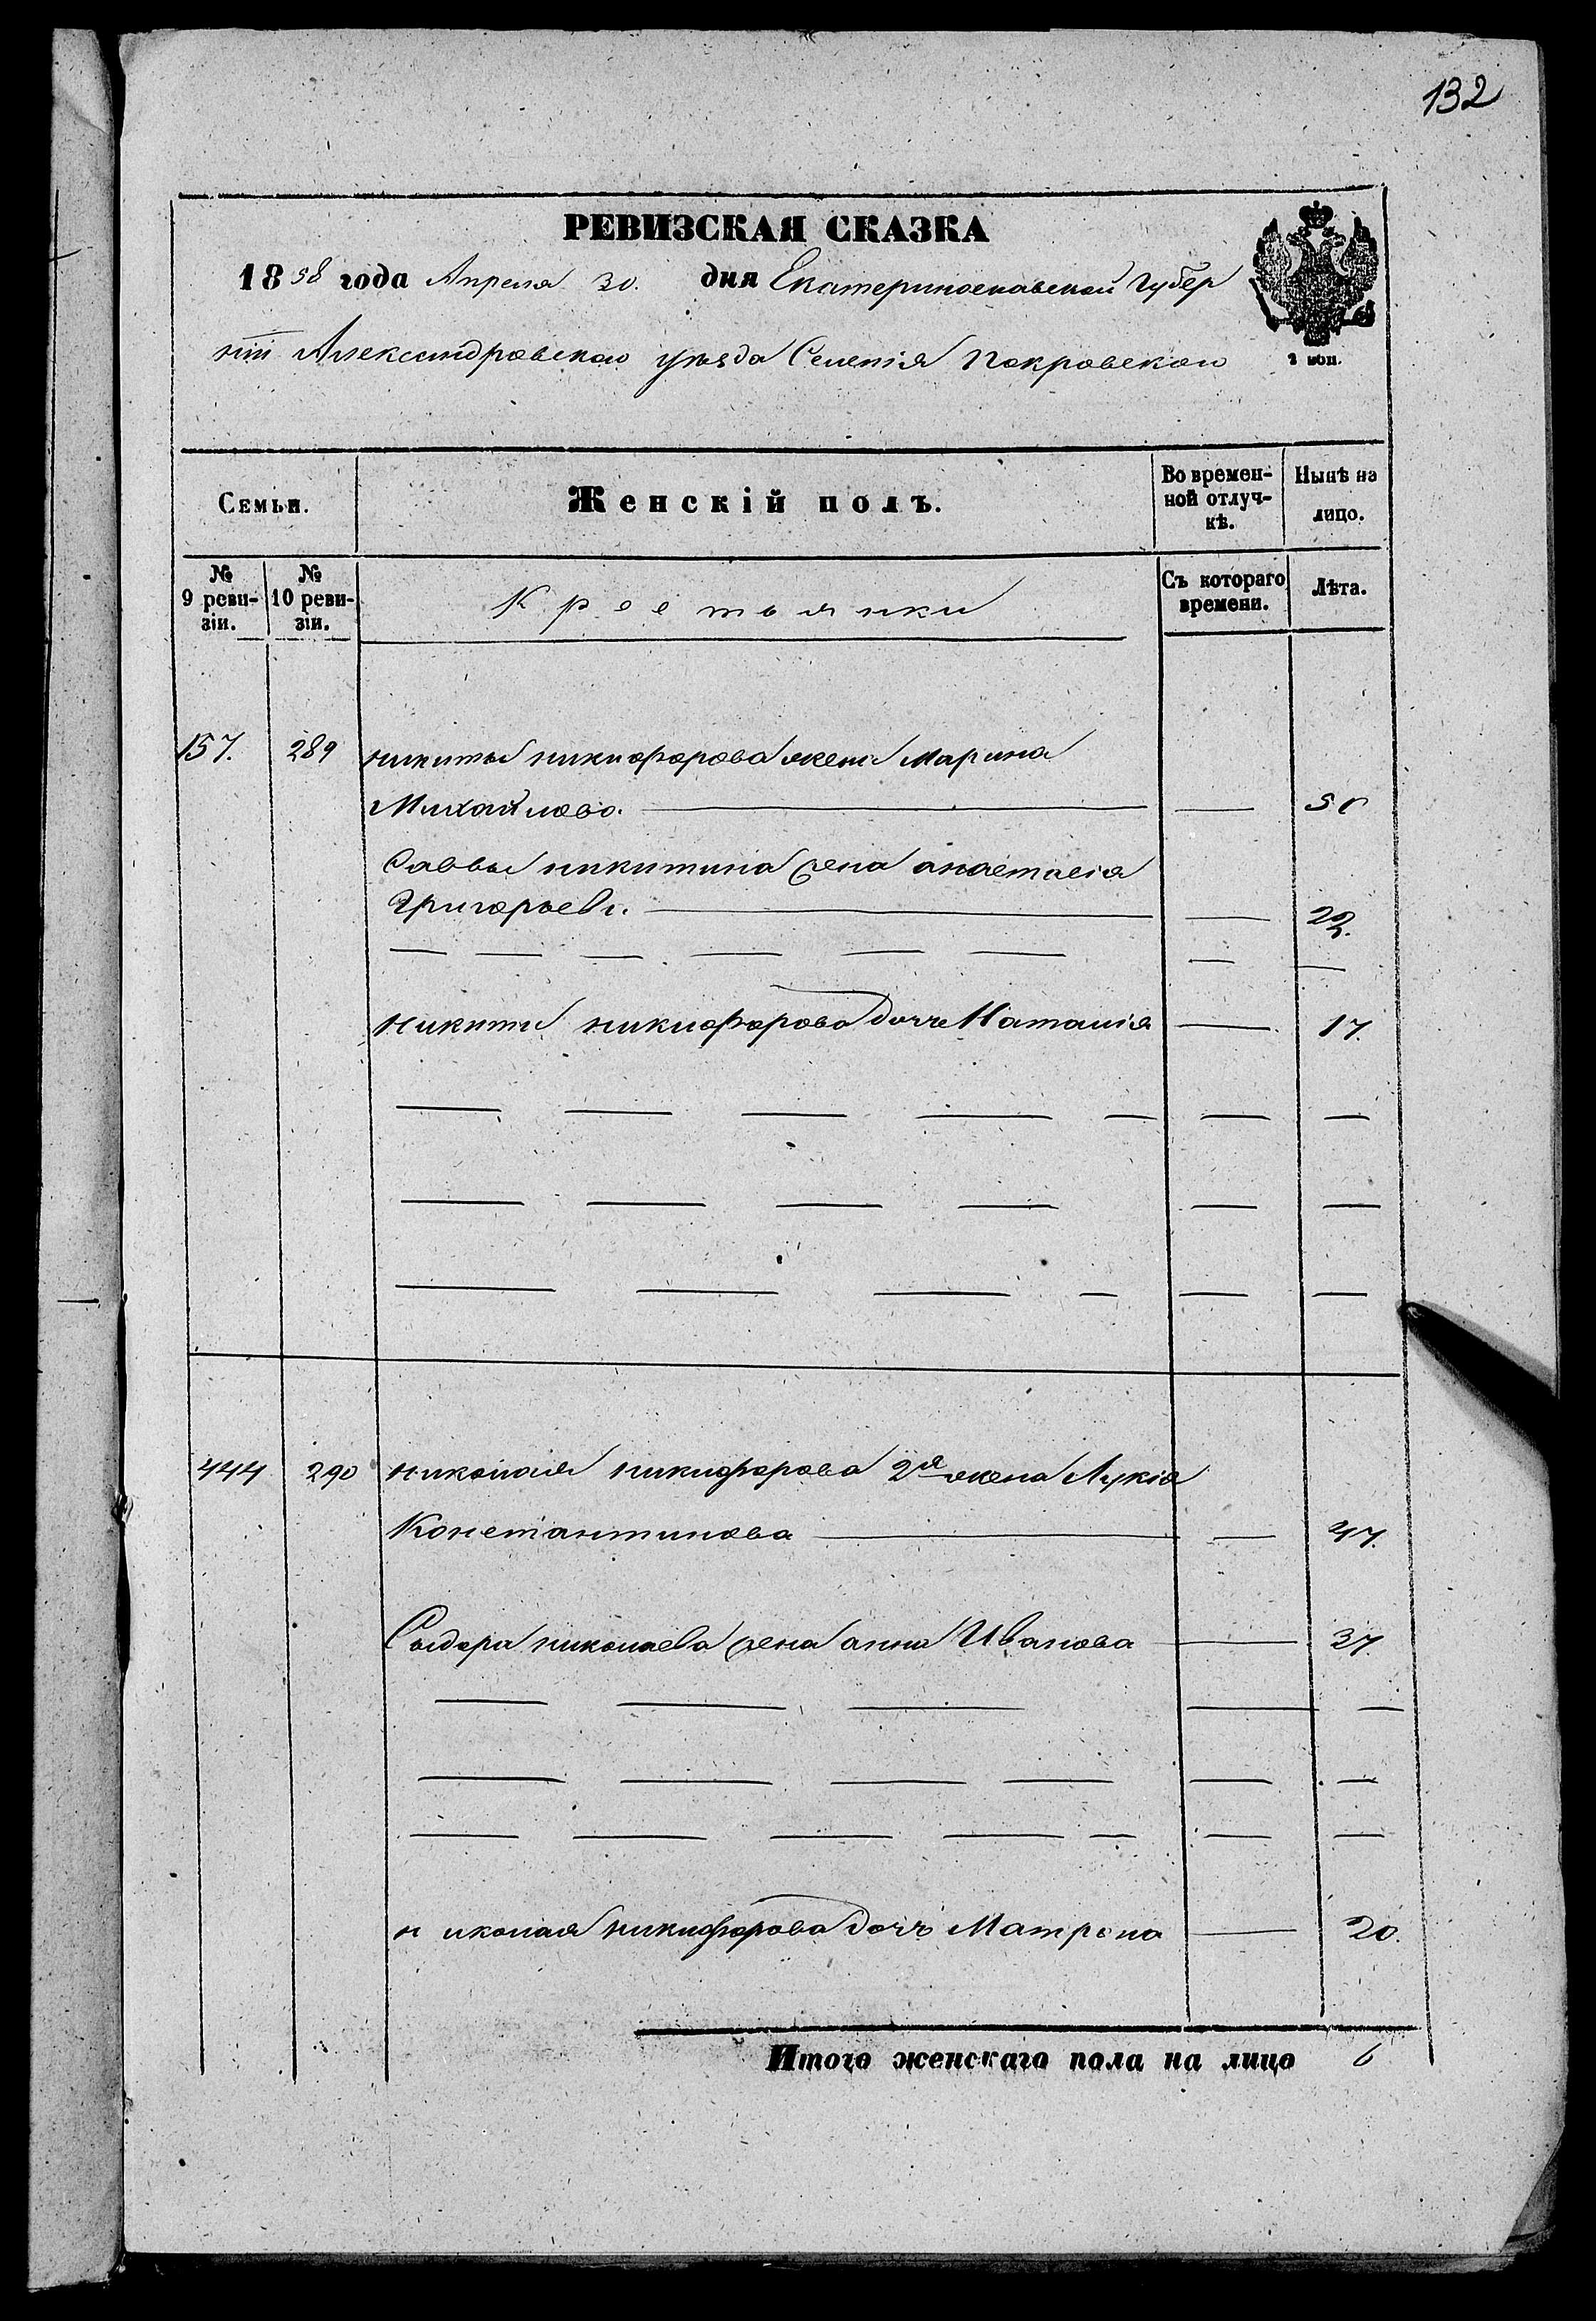 132
РЕВИЗСКАЯ СКАЗКА
1858 года Апреля 30. дня Екатеринославской Губер
ніи Александровскаго уѣзда Селенія Покровскаго
2 коп.
Семьи. Женскій полъ. Во времен-ной отлуч-кѣ. Нынѣ на лицо.
№ 9 реви-зіи. № 10 реви-зіи. Крестьянки Съ котораго времени. Лѣта.
157. 289 никиты никифорова жена Марина
Михайлова. — 50
Саввы никитина жена анастасія
Григорьева. — 22.
никиты никифорова дочь Наталія — 17.
444 290 николая никифорова 2я жена Лукія
Константинова — 47.
Сыдора николаева жена анна Иванова — 37.
николая никифорова дочь Матрона — 20.
Итого женскаго пола на лицо 6